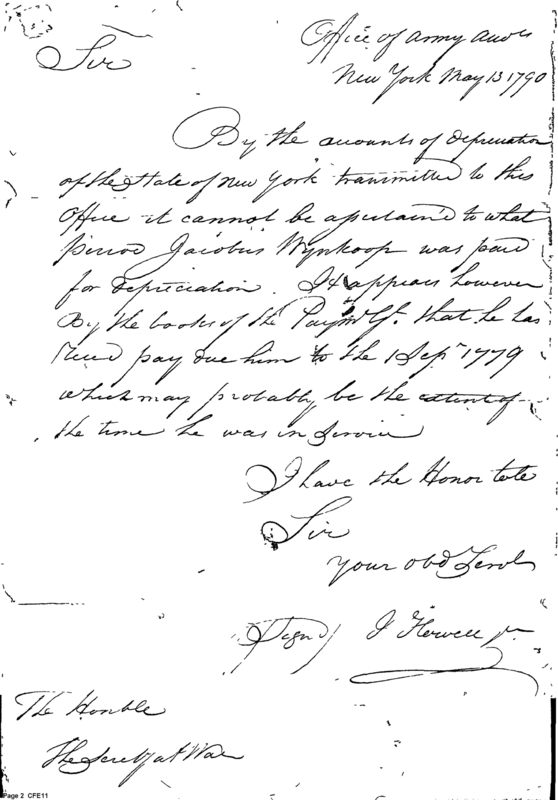 Office of Army Accts
New York May 13 1790
Sir
By the accounts of depreciation
of the State of New York transmitted to this
Office it cannot be ascertain'd to what
period Jacobus Wynkoop was paid
for depreciation. It appears however
By the books of the Paymr Gl. that he has
recd pay due him to the 1 Sepr 1779
which may probably be the extent of
the time he was in Service
I have the Honor to be
Sir
your obd Servt
(Signd) J Howell jr
The Honble
The Secrety at War
Page 2 CFE11